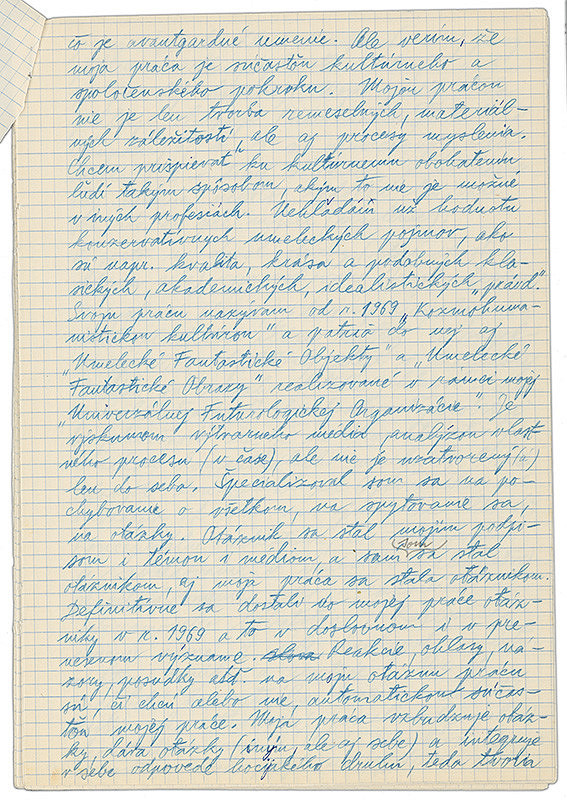 čo je avantgardné umenie. Ale verím, že
moja práca je súčasťou kultúrneho a
spoločenského pokroku. Mojou prácou
nie je len tvorba remeselných, materiál-
nych záležitostí, ale aj procesy myslenia.
Chcem prispievať ku kultúrnemu obohateniu
ľudí takým spôsobom, akým to nie je možné
v iných profesiách. Nehľadám už hodnotu
konzervatívnych umeleckých pojmov, ako
sú napr. kvalita, krása a podobných kla-
sických, akademických, idealistických „právd".
Svoju prácu nazývam od r. 1969 „Kozmohuma-
nistickou kultúrou" a patria do nej aj
„Umelecké Fantastické Objekty" a „Umelecké
Fantastické Obrazy" realizované v rámci mojej
"Univerzálnej Futurologickej Organizácie". Je
výskumom výtvarného média, analýzou vlast-
ného procesu (v čase), ale nie je uzatvorený(á)
len do seba. Špecializoval som sa na po-
chybovanie o všetkom, na spytovanie sa,
na otázky. Otáznik sa stal mojim podpi-
som i témou i médiom, a sám som sa stal
otáznikom, aj moja práca sa stala otáznikom.
Definitívne sa dostali do mojej práce otáz-
niky v r. 1969 a to v doslovnom i v pre-
nesenom význame. Reakcie, ohlasy, ná-
zory, posudky atď. na moju otáznu prácu
sú, či chcú alebo nie, automatickou súčas-
ťou mojej práce. Moja práca vzbudzuje otáz-
ky, dáva otázky (iným, ale aj sebe) a integruje
v sebe odpovede hocijakého druhu, teda tvoria